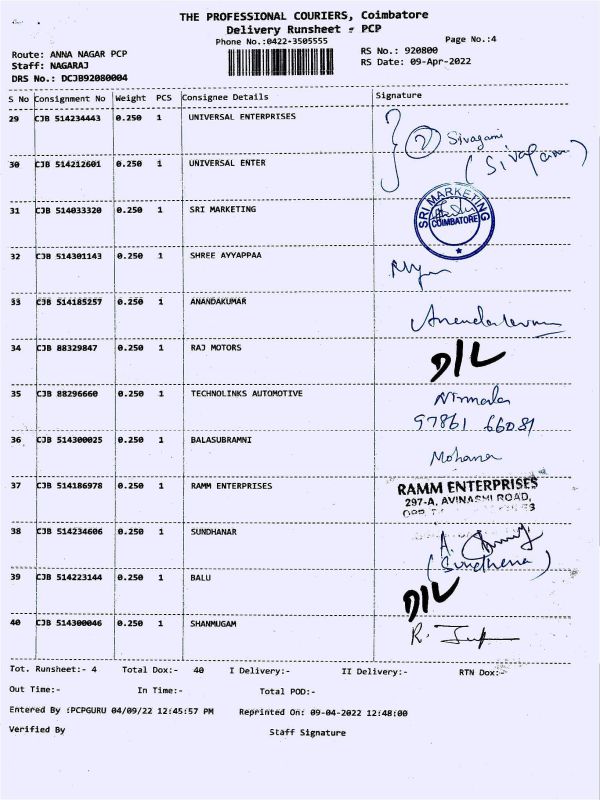 THE PROFESSIONAL COURIERS, Coimbatore
Delivery Runsheet - PCP
Phone No.:0422-3505555
Page No.:4
Route: ANNA NAGAR PCP
RS No.: 920800
Staff: NAGARAJ
RS Date: 09-Apr-2022
DRS No.: DCJB92080004
S No Consignment No Weight PCS Consignee Details Signature
29 CJB 514234443 0.250 1 UNIVERSAL ENTERPRISES
2 Sivagami
(Sivagami)
30 CJB 514212601 0.250 1 UNIVERSAL ENTER
31 CJB 514033320 0.250 1 SRI MARKETING
SRI MARKETING
COIMBATORE
32 CJB 514301143 0.250 1 SHREE AYYAPPAA
33 CJB 514185257 0.250 1 ANANDAKUMAR
34 CJB 88329847 0.250 1 RAJ MOTORS
D/L
35 CJB 88296660 0.250 1 TECHNOLINKS AUTOMOTIVE
Nirmala
97861 66081
36 CJB 514300025 0.250 1 BALASUBRAMNI
Mohana
37 CJB 514186978 0.250 1 RAMM ENTERPRISES
RAMM ENTERPRISES
297-A, AVINASHI ROAD,
38 CJB 514234606 0.250 1 SUNDHANAR
A.
(Sundhena)
39 CJB 514223144 0.250 1 BALU
D/L
40 CJB 514300046 0.250 1 SHANMUGAM
R.
Tot. Runsheet:- 4 Total Dox:- 40 I Delivery:- II Delivery:- RTN Dox:-
Out Time:- In Time:- Total POD:-
Entered By :PCPGURU 04/09/22 12:45:57 PM Reprinted On: 09-04-2022 12:48:00
Verified By Staff Signature